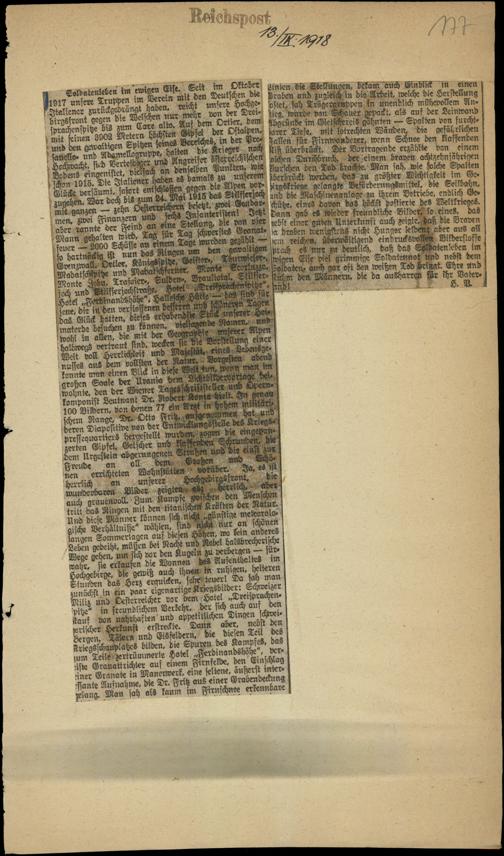 Reichspost
13./IX. 1918
177
Soldatenleben im ewigen Eise. Seit im Oktober
1917 unsere Truppen im Verein mit den Deutschen die
Italiener zurückgedrängt haben, reicht unsere Hochge-
birgsfront gegen die Welschen nur mehr von der Drei-
sprachenspitze bis zum Care alto. Auf dem Ortler, dem
mit seinen 3902 Metern höchsten Gipfel der Ostalpen,
und den gewaltigen Spitzen seines Bereiches, in der Pre-
sanella- und Adamellogruppe, halten die Krieger noch
Hochwacht, sich Verteidiger und Angreifer österreichischen
Bodens eingenistet, vielfach an denselben Punkten, wie
schon 1915. Die Italiener haben es damals zu unserem
Glücke versäumt, sofort entschlossen gegen die Alpen vor-
zugehen. War doch bis zum 24. Mai 1915 das Stilfserjoch
mit ganzen — zehn Oesterreichern besetzt, zwei Gendar-
men, zwei Finanzern und sechs Infanteristen! Jetzt
aber rannte der Feind an eine Stellung, die von vier
Mann gehalten wird, Tag für Tag schwerstes Granat-
feuer — 2000 Schüsse an einem Tage wurden gezählt —
so hartnäckig ist nun das Ringen um die gewaltigen
Hotel „Ferdinandshöhe“, Hallesche Hütte — das sind für
jene, die in den verflossenen besseren und schöneren Tagen
das Glück hatten, dieses erhabendste Stück unserer Hei-
materde besuchen zu können, vielsagende Namen, und
wohl in allen, die mit der Geographie unserer Alpen
halbwegs vertraut sind, wecken sie die Vorstellung einer
Welt voll Herrlichkeit und Majestät, eines Lebensge-
nusses aus dem vollsten der Natur. Vorgestern abend
konnte man einen Blick in diese Welt tun, wenn man im
großen Saale der Urania dem Lichtbildervortrage bei-
wohnte, den der Wiener Tagesschriftsteller und Opern-
komponist Leutnant Dr. Robert Konta hielt. In genau
100 Bildern, von denen 77 ein Arzt in hohem militäri-
schen Range, Dr. Otto Fritz, aufgenommen hat und
deren Diapositive von der Entwicklungsstelle des Kriegs-
pressequartiers hergestellt wurden, zogen die eingepan-
zerten Gipfel, Gletscher und klaffenden Schrunden, die
dem Urgestein abgerungenen Straßen und die einst zur
Freude an all dem Großen und Schö-
nen errichteten Wohnstätten vorüber. Ja, es ist
herrlich an unserer Hochgebirgsfront, die
wunderbaren Bilder zeigten es; herrlich, aber
auch grauenvoll. Zum Kampfe zwischen den Menschen
tritt das Ringen mit den titanischen Kräften der Natur.
Und diese Männer können sich nicht „günstige meteorolo-
gische Verhältnisse“ wählen, sind nicht nur an schönen
langen Sommertagen auf diesen Höhen, wo kein anderes
Leben gedeiht, müssen bei Nacht und Nebel halsbrecherische
Wege gehen, um sich vor den Kugeln zu verbergen — für-
wahr, sie erkaufen die Wonnen des Aufenthaltes im
Hochgebirge, die gewiß auch ihnen in ruhigen, heiteren
Stunden das Herz erquicken, sehr teuer! Da sah man
zunächst in ein paar eigenartige Kriegsbilder: Schweizer
Miliz und Oesterreicher vor dem Hotel „Dreisprachen-
spitze“ in freundlichem Verkehr, der sich auch auf den
Kauf von nahrhaften und appetitlichen Dingen schwei-
zerischer Herkunft erstreckte. Dann aber, nebst den
Bergen, Tälern und Eisfeldern, die diesen Teil des
Kriegsschauplatzes bilden, die Spuren des Kampfes, das
zum Teile zertrümmerte Hotel „Ferdinandshöhe“, ver-
eiste Granattrichter auf einem Firnfelde, den Einschlag
einer Granate in Mauerwerk, eine seltene, äußerst inter-
essante Aufnahme, die Dr. Fritz aus einer Grabendeckung
gelang. Man sah als kaum im Firnschnee erkennbare
Linien die Stellungen, bekam auch Einblick in einen
Graben und zugleich in die Arbeit, welche die Herstellung
kostet, sah Trägergruppen in unendlich mühevollem An-
stieg, wurde von Schauer gepackt, als auf der Leinwand
Abgründe im Gletschereis gähnten — Spalten von furcht-
barer Tiefe, mit lotrechten Wänden, die gefährlichen
Fallen für Firnwanderer, wenn Schnee den klaffenden
Riß überbrückt. Der Vortragende erzählte von einem
solchen Durchbruch, der einem braven achtzehnjährigen
Burschen den Tod brachte. Man sah, wie solche Spalten
überbrückt werden, das zu größter Wichtigkeit im Ge-
birgskriege gelangte Beförderungsmittel, die Seilbahn,
und die Maschinenanlage zu ihrem Betriebe, endlich Ge-
schütze, eines davon das höchst postierte des Weltkrieges.
Dann gab es wieder freundliche Bilder, so eines, das
nebst einer guten Unterkunft auch zeigt, daß die Braven
da droben wenigstens nicht Hunger leiden; aber aus all
dem reichen, überwältigend eindrucksvollen Bilderstoffe
sprach es nur zu deutlich, daß das Soldatenleben im
ewigen Eise viel grimmige Soldatennot und nebst dem
Soldaten- auch gar oft den weißen Tod bringt. Ehre und
Ruhm den Männern, die da ausharren für ihr Vater-
land!
H. B.